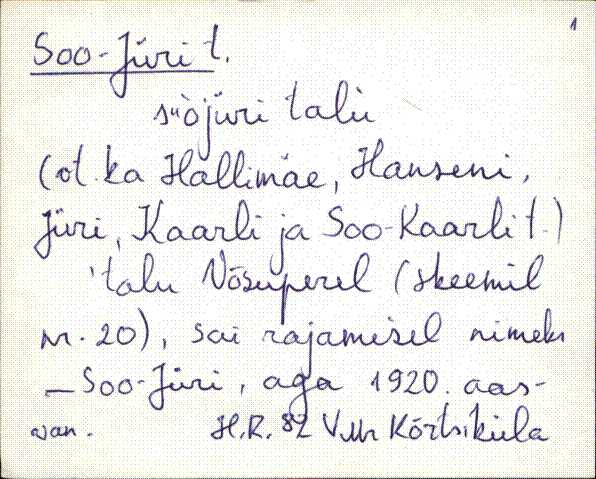 1
Soo-Jüri t.
süöjüri talu
(vt. ka Hallimäe, Hanseni,
Jüri, Kaarli ja Soo-Kaarli t.)
'talu Võsuperel (skeemil
nr. 20), sai rajamisel nimeks
– Soo-Jüri, aga 1920. aas-
van. H.R. 82 VMr Kõrtsiküla